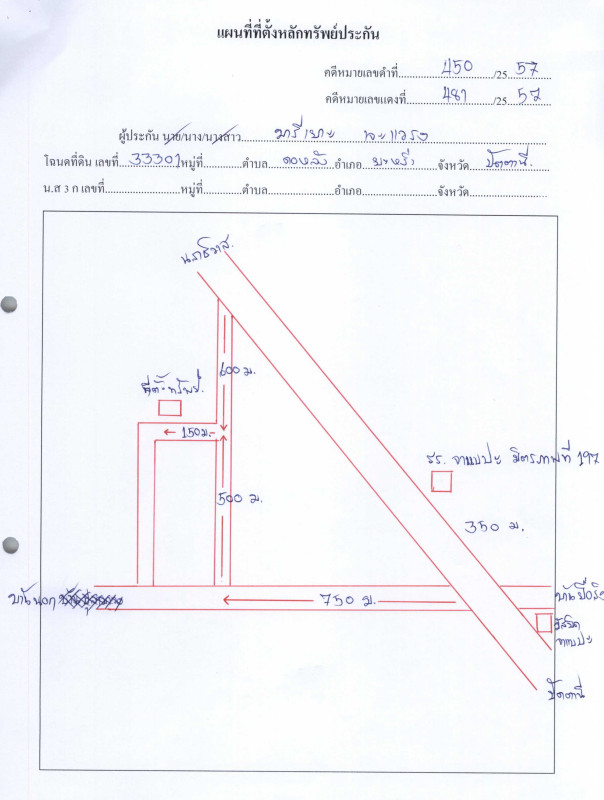 แผนที่ที่ตั้งหลักทรัพย์ประกัน
คดีหมายเลขดำที่ 450 /25 57
คดีหมายเลขแดงที่ 481 /25 57
ผู้ประกัน นาย/นาง/นางสาว มารีเยาะ เจะแวง
โฉนดที่ดิน เลขที่ 33301 หมู่ที่ ตำบล ดอนหลัง อำเภอ จังหวัด ปัตตานี
น.ส 3 ก เลขที่ หมู่ที่ ตำบล อำเภอ จังหวัด
นราธิวาส
600 ม.
ที่ตั้งทรัพย์
150 ม.
รร. จาแบปะ มิตรภาพที่ 197
500 ม.
350 ม.
บ้านนอก
750 ม.
มัสยิด
จาแบปะ
ปัตตานี